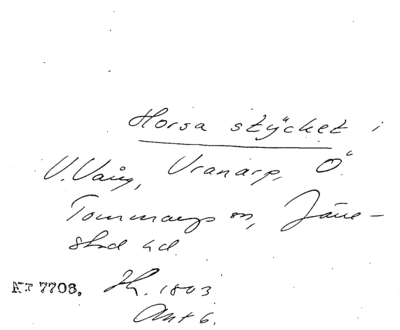 Horsa stÿcket i
V. Vång, Vranarp, Ö.
Tommarps sn, Järre-
stad hd.
NT 7708. Hr. 1803
Akt 6.